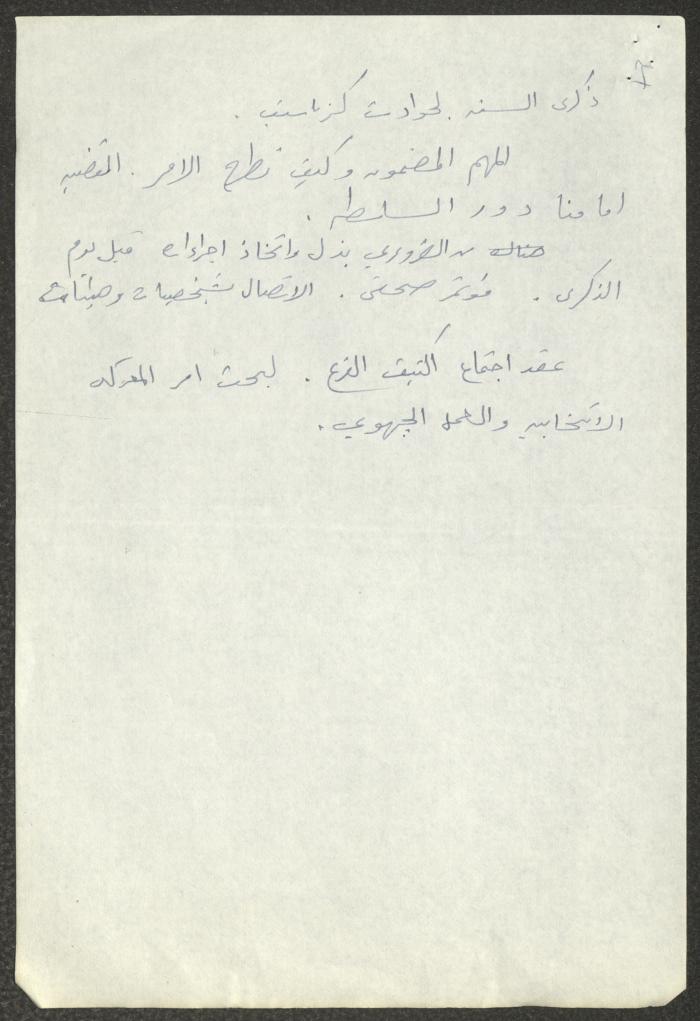 ذكرى السنه لحوادث كفرياسيف .
المهم المضمون وكيف نطرح الامر . القضيه
امامنا دور السلطه .
من الضروري بذل واتخاذ اجراءات قبل يوم
الذكرى . مؤتمر صحفي . الاتصال بشخصيات وهيئات
عقد اجتماع الفرع . لبحث امر المعركه
الانتخابيه والعمل الجبهوي .